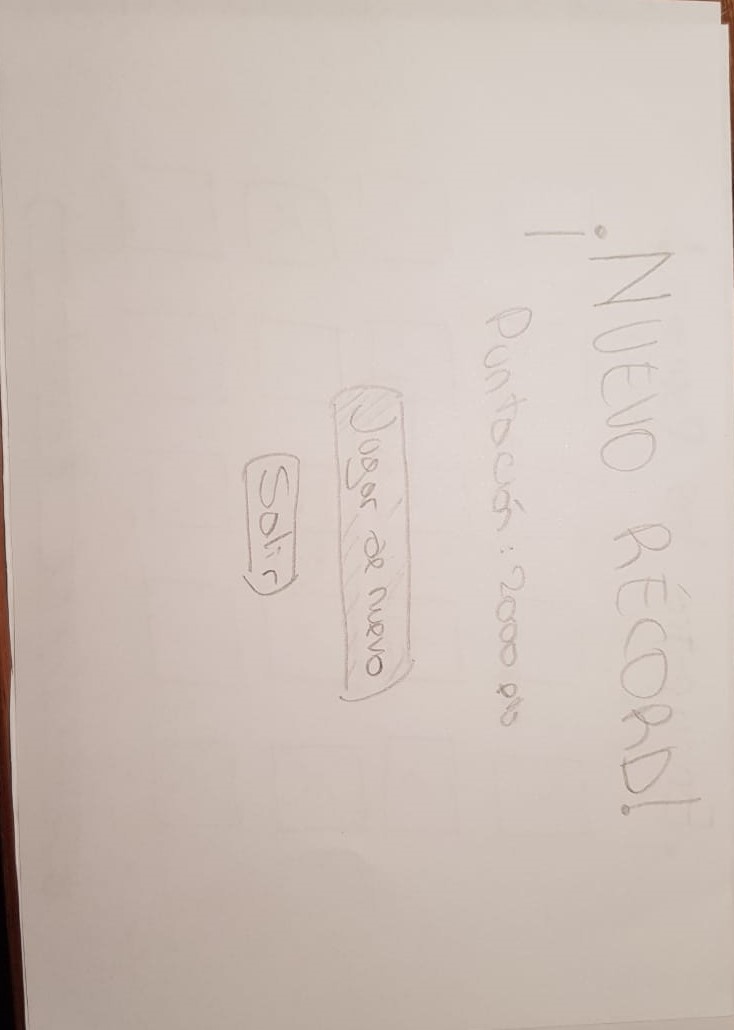 ¡NUEVO RÉCORD!
Puntación: 2000 pts
Jugar de nuevo
Salir